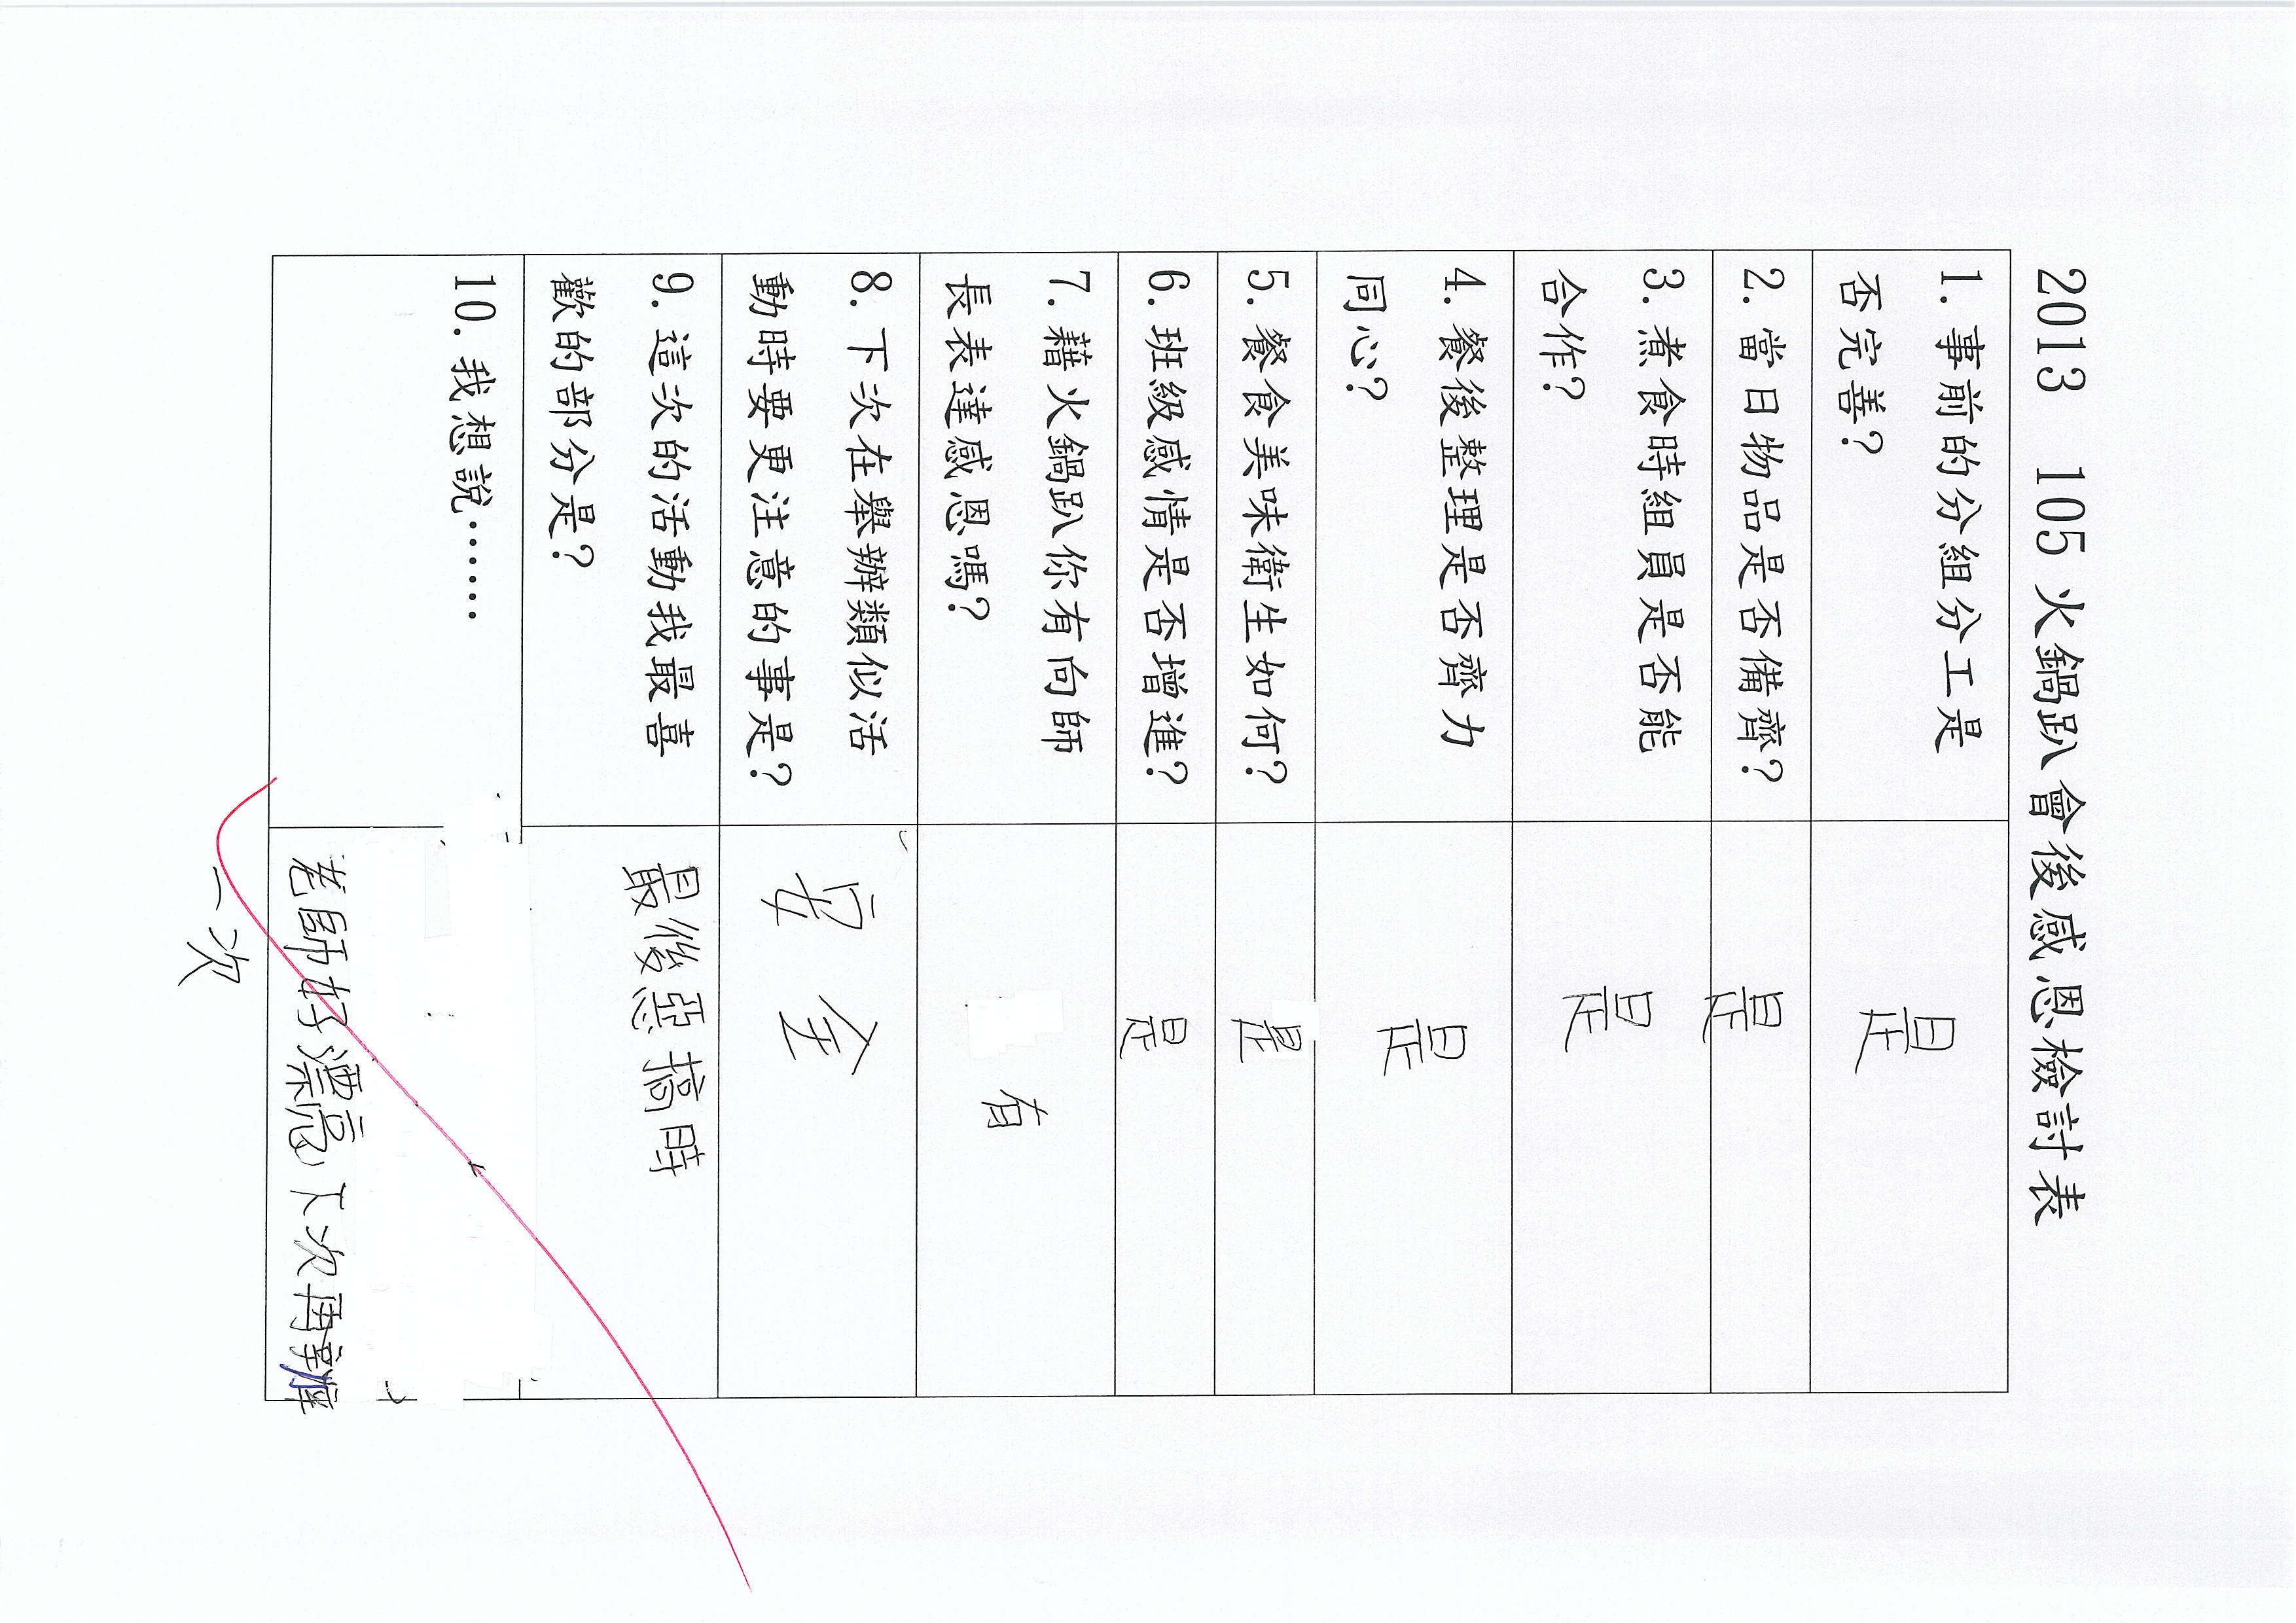 2013 105火鍋趴會後感恩檢討表
1. 事前的分組分工是
否完善?
是
2. 當日物品是否備齊?
是
3. 煮食時組員是否能
合作?
是
4. 餐後整理是否齊力
同心?
是
5. 餐食美味衛生如何?
是
6. 班級感情是否增進?
是
7. 藉火鍋趴你有向師
長表達感恩嗎?
有
8. 下次在舉辦類似活
動時要更注意的事是?
安全
9. 這次的活動我最喜
歡的部分是?
最後惡搞時
10. 我想說.......
老師好漂亮,下次再辦
一次